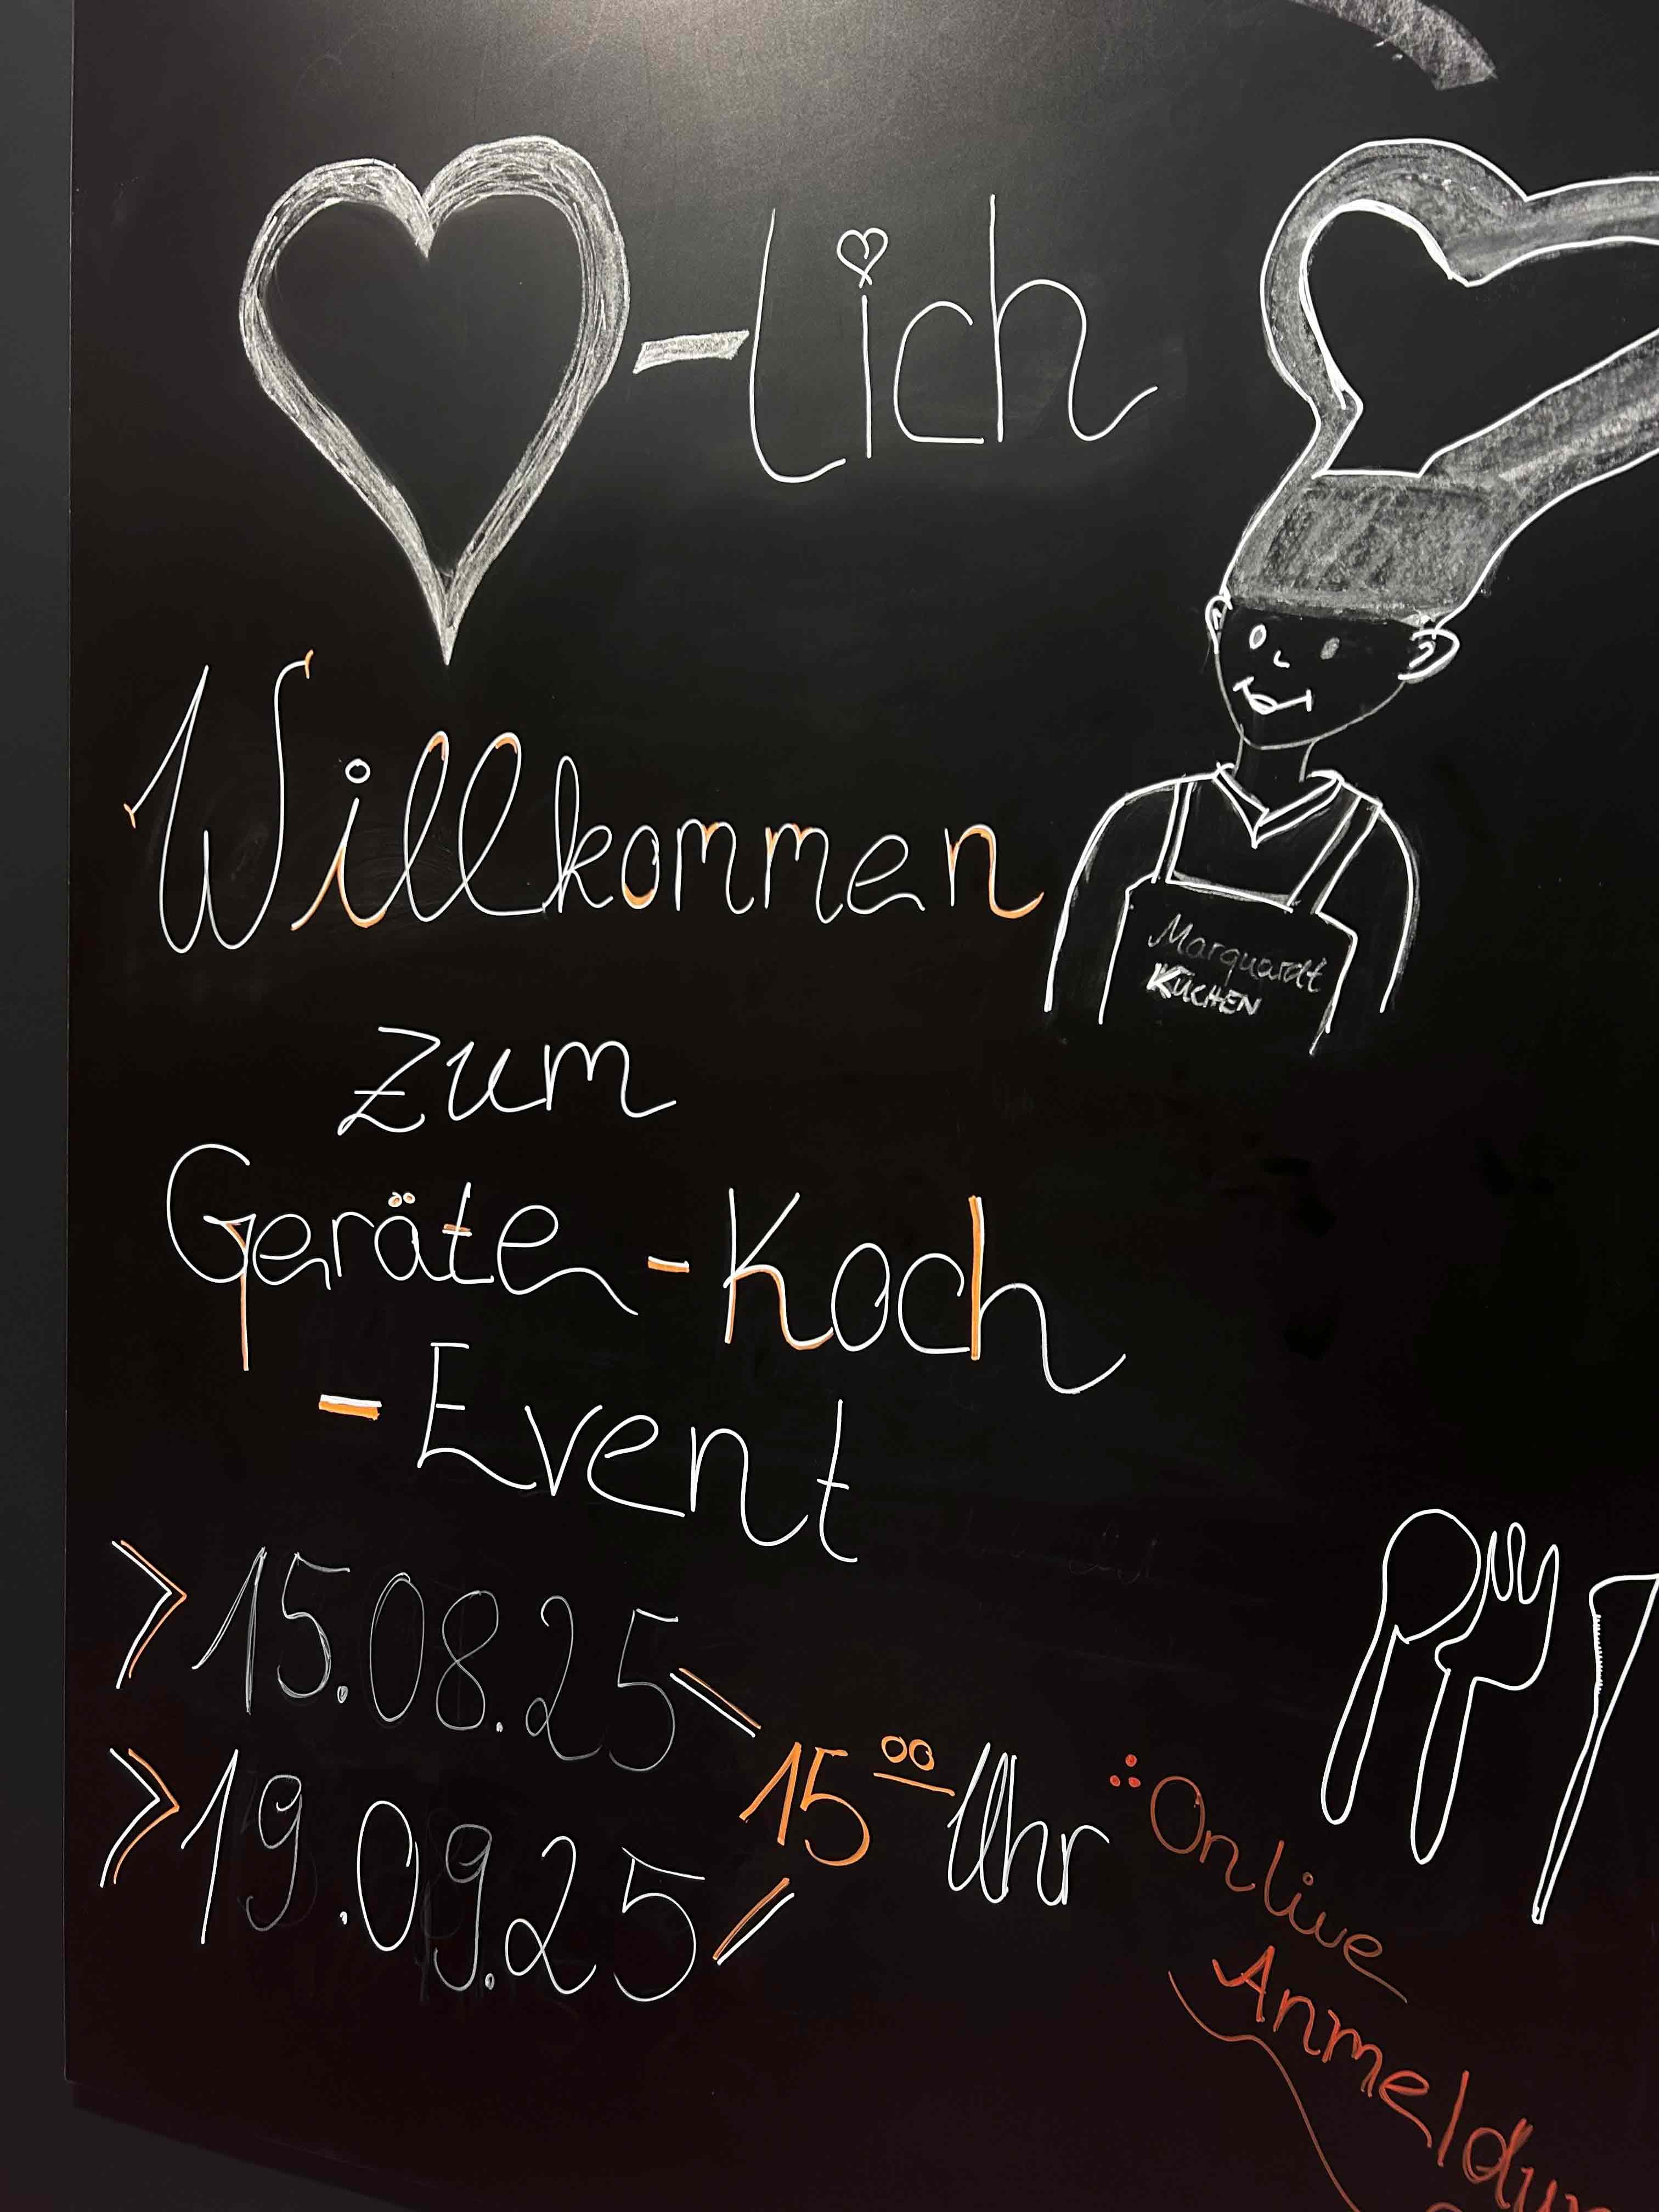 -lich
Willkommen
zum
Geräte-Koch
-Event
> 15.08.25
> 19.09.25
15⁰⁰ Uhr
Online
Anmeldun
Marquardt
KÜCHEN